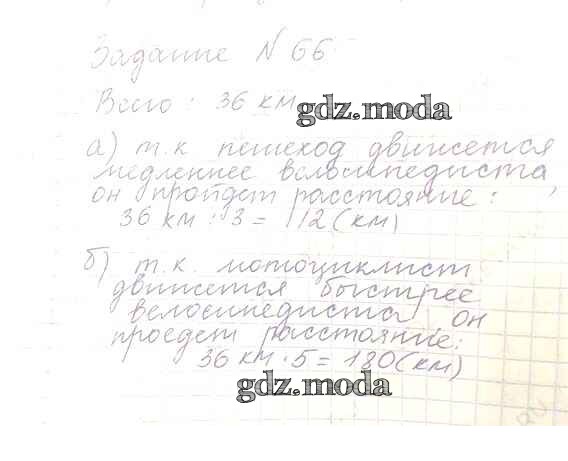 Задание № 66
Всего : 36 км
gdz.moda
а) т.к пешеход движется
медленнее велосипедиста,
он пройдет расстояние :
36 км : 3 = 112 (км)
б) т.к. мотоциклист
движется быстрее
велосипедиста он
проедет расстояние:
36 км . 5 = 180 (км)
gdz.moda